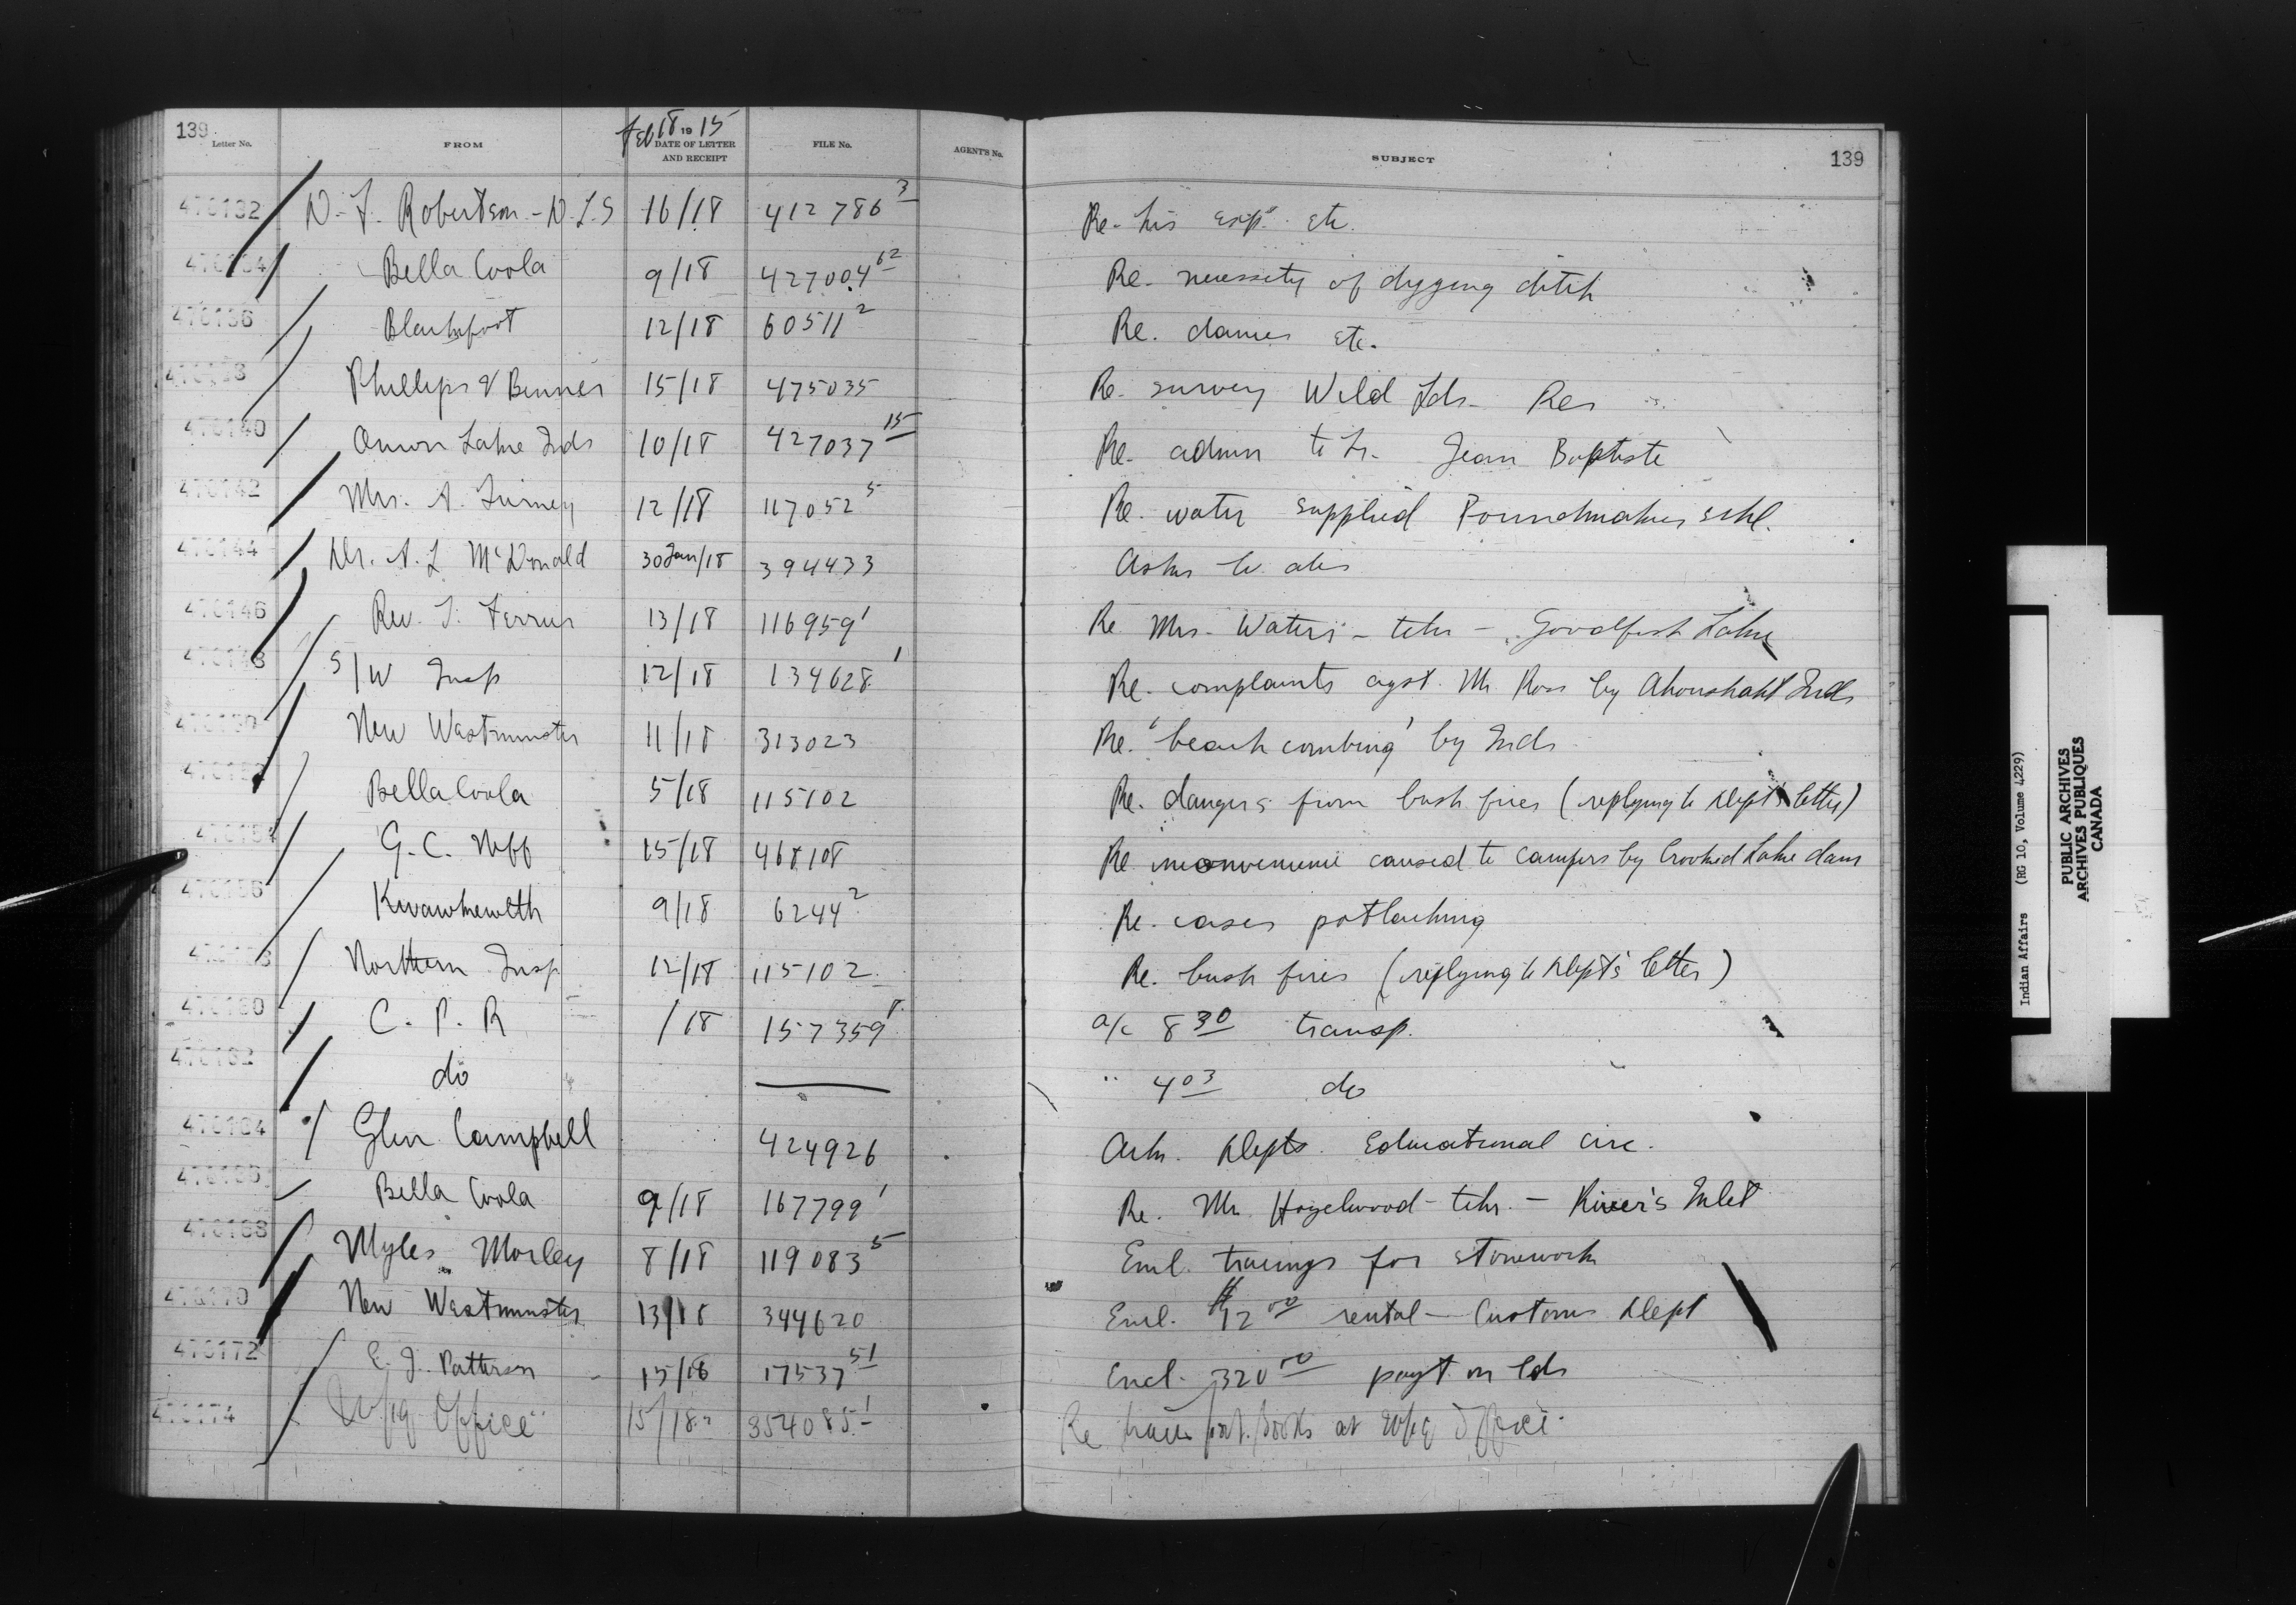 139
Letter No. FROM Feb 18 1915 DATE OF LETTER AND RECEIPT FILE No. AGENT'S No. SUBJECT 139
476132 D. F. Robertson - D.L.S 16/18 412786 3 Re- his exp. etc.
Bella Coola 9/18 427004 62 Re- necessity of digging ditch
476136 Blackfoot 12/18 60511 2 Re. dances etc.
Phillips & Benner 15/18 475035 Re- survey Wild Lds- Res
476140 Lake Inds 10/18 427037 15 Re- admn to Jean Baptiste
476142 Mrs. A. 12/18 117052 5 Re. water supplied Poundmakers schl.
476144 Dr. A. L McDonald 30 Jan/18 394433 Asks
476146 Rev. T. Ferrier 13/18 116959 1 Re Mrs- Waters - tchr - Goodfish Lake
476148 S/W Insp 12/18 134628 1 Re- complaints agst. Mr Ross by Ahoushaht Inds
New Westminster 11/18 313023 Re. 'beach combing' by Inds
Bella Coola 5/18 115102 Re. dangers from bush fires (replying to Dept's letter)
G. C. Neff 15/18 468108 Re inconvenience caused to campers by Crooked Lake dam
476156 Kwawkewlth 9/18 6244 2 Re. cases potlaching
Northern Insp. 12/18 115102 Re. bush fires (replying to Dept's letter)
476160 C. P. R /18 157359 8 a/c 8 30 transp.
476162 do " 4 03 do
476164 Glen Campbell 424926 Ack. Depts. Educational circ.
Bella Coola 9/18 167799 1 Re. Mr Hazelwood - tchr. - River's Inlet
476168 Myles Morley 8/18 119083 5 Encl. tracings for stonework
476170 New Westminster 13/18 344620 Encl. $12 00 rental - Customs Dept
476172 E. J. Patterson 15/18 17537 51 Encl. 320 00 payt on lds
476174 Wpg Office 15/18 354085 1 Re books at Wpg Office
Indian Affairs (RG 10, Volume 4229)
PUBLIC ARCHIVES
ARCHIVES PUBLIQUES
CANADA